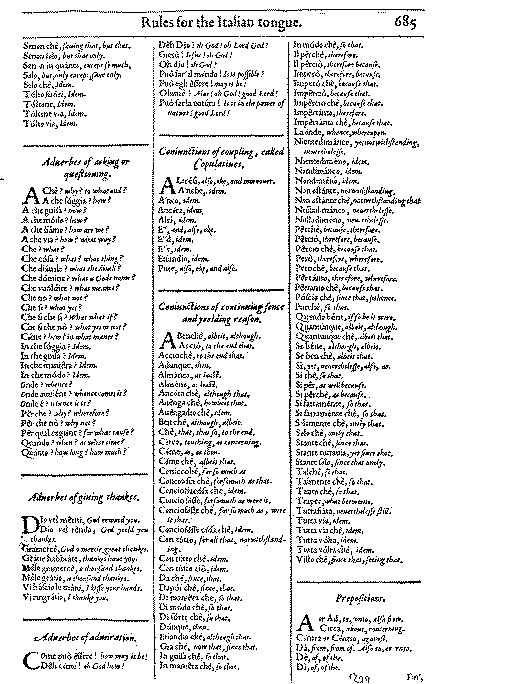 Rules for the Italian tongue. 685
Senon chè, sauing that, but that.
Senon solo, but that only.
Salo, but only, except, saue only.
Solo chè, idem.
Tólto fuóri, idem.
Toltone, Idem.
Toltone via, Idem.
Tolto via, Idem.
Aduerbes of asking or
questioning.
A Chè? why? to what end?
A che fóggia? how?
A che guisa? how?
A che módo? how?
A che siámo? how are we?
A che via? how? what way?
Che? what?
Che cósa? what? what thing?
Che diáuole? what the diuell?
Che dómine? what a Gods name?
Che vuóldire? what meanes it?
Che nò? what not?
Che sè? what yet?
Che sì che sì? What what if?
Che sì che nò? what yea or not?
Cóme? how? in what manner?
In che fóggia? Idem.
In che guisa? Idem.
In che maniéra? Idem.
In che módo? Idem.
Onde? whence?
Onde auuiéne? whence comes it?
Onde è? whence is it?
Pér che? why? wherefore?
Pér che nò? why not?
Pér qual cagióne? for what cause?
Quándo? when? at what time?
Quánto? how long? how much?
Aduerbes of giuing thankes.
Dio vel mériti, God reward you.
Dio vel rénda, God yeeld you
thanks.
Gramercè, God a mercie, great thankes.
Grátie habbiáte, thankes haue you.
Mille gramercè, a thousand thankes.
Mille grátie, a thousand thankes.
Vi báscio le máni, I kisse your hands.
Vi ringrátio, I thanke you.
Aduerbes of admiration.
Come può éssere! how may it be!
Dèh cóme! ah God how!
Dèh Dio! ah God! oh Lord God!
Giesù! Iesus! oh God!
Oh dio! oh God!
Può far'il móndo! Is it possible?
Può egli éssere! may it be!
Ohimè! Alas! oh God! good Lord!
Può far la natúra! Is it in the power of
nature! good Lord!
Coniunctions of coupling, called
Copulatiues.
A Ltresì, also, eke, and moreouer.
Anche, idem.
A'nco, idem.
Ancóra, idem.
Alsì, idem.
E', and, also, eke.
E'd, idem.
E't, idem.
Etiandío, idem.
Pure, also, eke, and also.
Coniunctions of continuing sence
and yeelding reason.
A Benchè, albeit, although.
Acciò, to the end that.
Acciochè, to the end that.
Adúnque, then.
Almánco, at least.
Alméno, at least.
Ancóra chè, although that.
Auénga chè, howbeit that.
Auéngadio chè, idem.
Bén chè, although, albeit.
Chè, that, then, so, to the end.
Circa, touching, as concerning.
Cóme, as, as then.
Cóme chè, albeit that.
Conciosia chè, for so much as that.
Conciosiacósa chè, idem.
Conciofósse, forsomuch as were it.
Conciofósse chè, for so much as, were
it that.
Conciofósse cósa chè, idem.
Con tútto, for all that, notwithstand-
ing.
Con tútto chè, idem.
Con tútto ciò, idem.
Da chè, since, that.
Dapoi chè, since, that.
Di maniéra chè, so that.
Di módo chè, so that.
Di sórte chè, so that.
Dúnque, then.
Etiandío chè, although that.
Gia chè, now that, since that.
In guisa chè, so that.
In maniéra chè, so that.
In módo chè, so that.
Il perchè, therefore.
Il perciò, therefore because.
Imperò, therefore, because.
Imperò chè, because that.
Imperciò, therefore because.
Imperciò chè, because that.
Impertánto, therefore.
Impertánto chè, because that.
Laónde, whence, whereupon.
Nientedimánco, yet notwithstanding,
neuerthelesse.
Nientediméno, idem.
Nondimánco, idem.
Nondiméno, idem.
Non ostánte, notwithstanding.
Non ostánte chè, notwithstanding that
Nulladimánco, neuerthelesse.
Nulladiméno, neuerthelesse.
Pérchè, because, therefore.
Perciò, therefore, because.
Perciò chè, because that.
Però, therefore, wherefore.
Però chè, because that.
Pertánto, therefore, wherefore.
Pertánto chè, because that.
Póscia chè, since that, sithence.
Purchè, so that.
Quándo béne, if so be it were.
Quantúnque, albeit, although.
Quantúnque chè, albeit that.
Se béne, although, albeit.
Se ben chè, albeit that.
Sì, yet, neuerthelesse, also, as.
Sì chè, so that.
Sì pér, as well because.
Sì pérchè, as because.
Sì fattaménte, so that.
Sì fattaménte chè, so that.
Solaménte chè, onely that.
Solo chè, onely that.
Stánte chè, since that.
Stánte tuttauía, yet since that.
Stánte sólo, since that onely.
Talchè, so that.
Talménte chè, so that.
Tánto chè, so that.
Tuttafiáta, neuerthelesse still.
Tutta vía, idem.
Tutta vía chè, idem.
Tutta vólta, idem.
Tutta vólta chè, idem.
Visto chè, since that, seeing that.
Prepositions.
A or Ad, to, vnto, also from.
Circa, about, concerning.
Cóntra or Cóntro, against.
Dà, from, from of. Also to, or vnto.
Dè, of, of the.
Di, of, of the.
Qqq